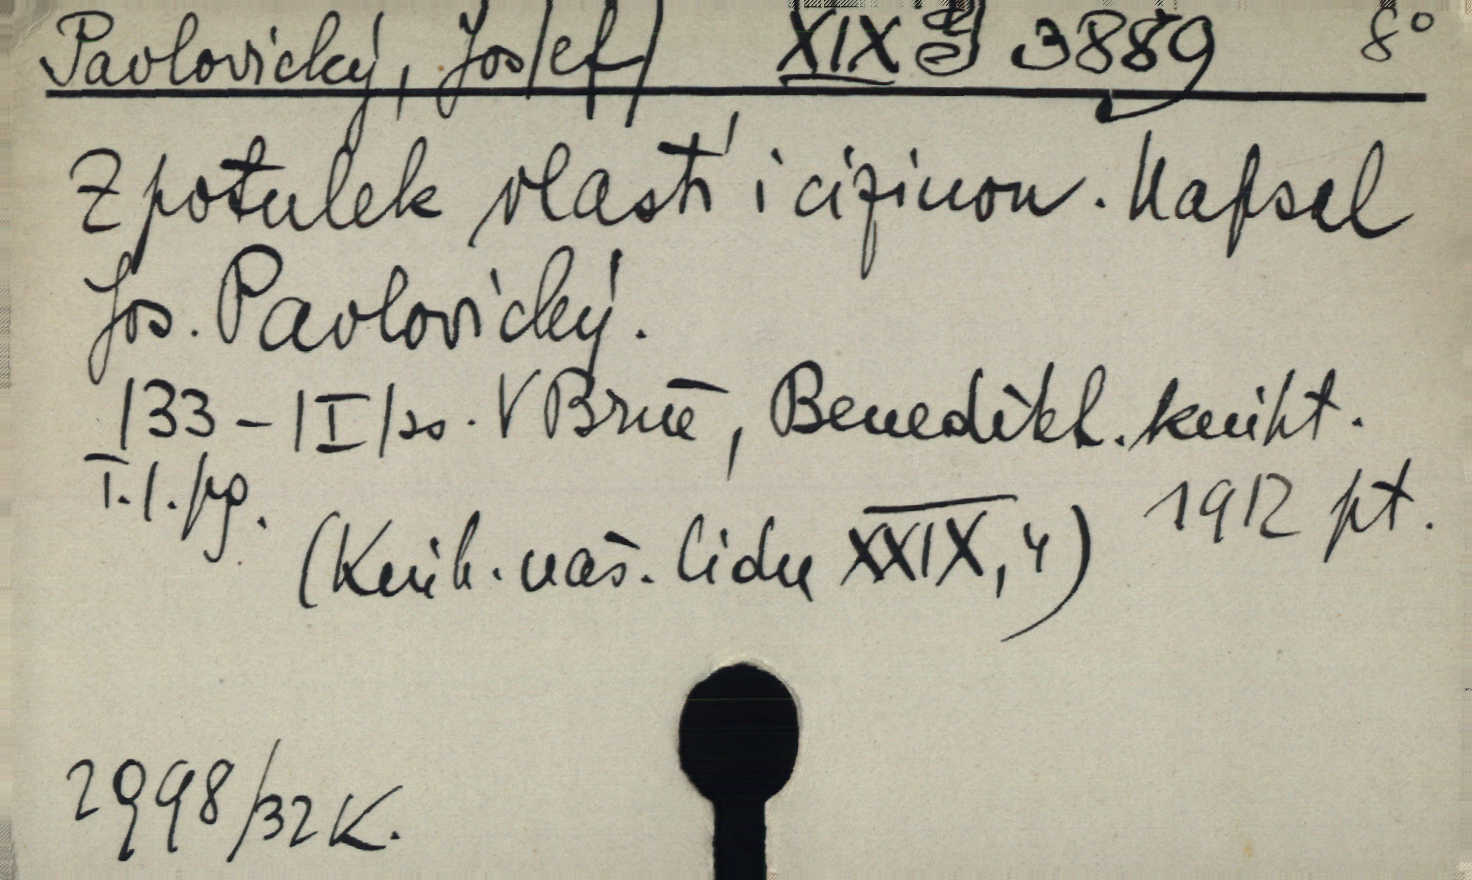 Pavlovický, Jos/ef/ XIX 3889 8°
Z potulek vlastí i cizinou. Napsal
Jos. Pavlovický.
133 - |I| 8°. V Brně, Benediktl. kniht.
T. l. pg. 1912 pt.
(Knih. naš. lidu XXIX, 4)
2998/32 K.